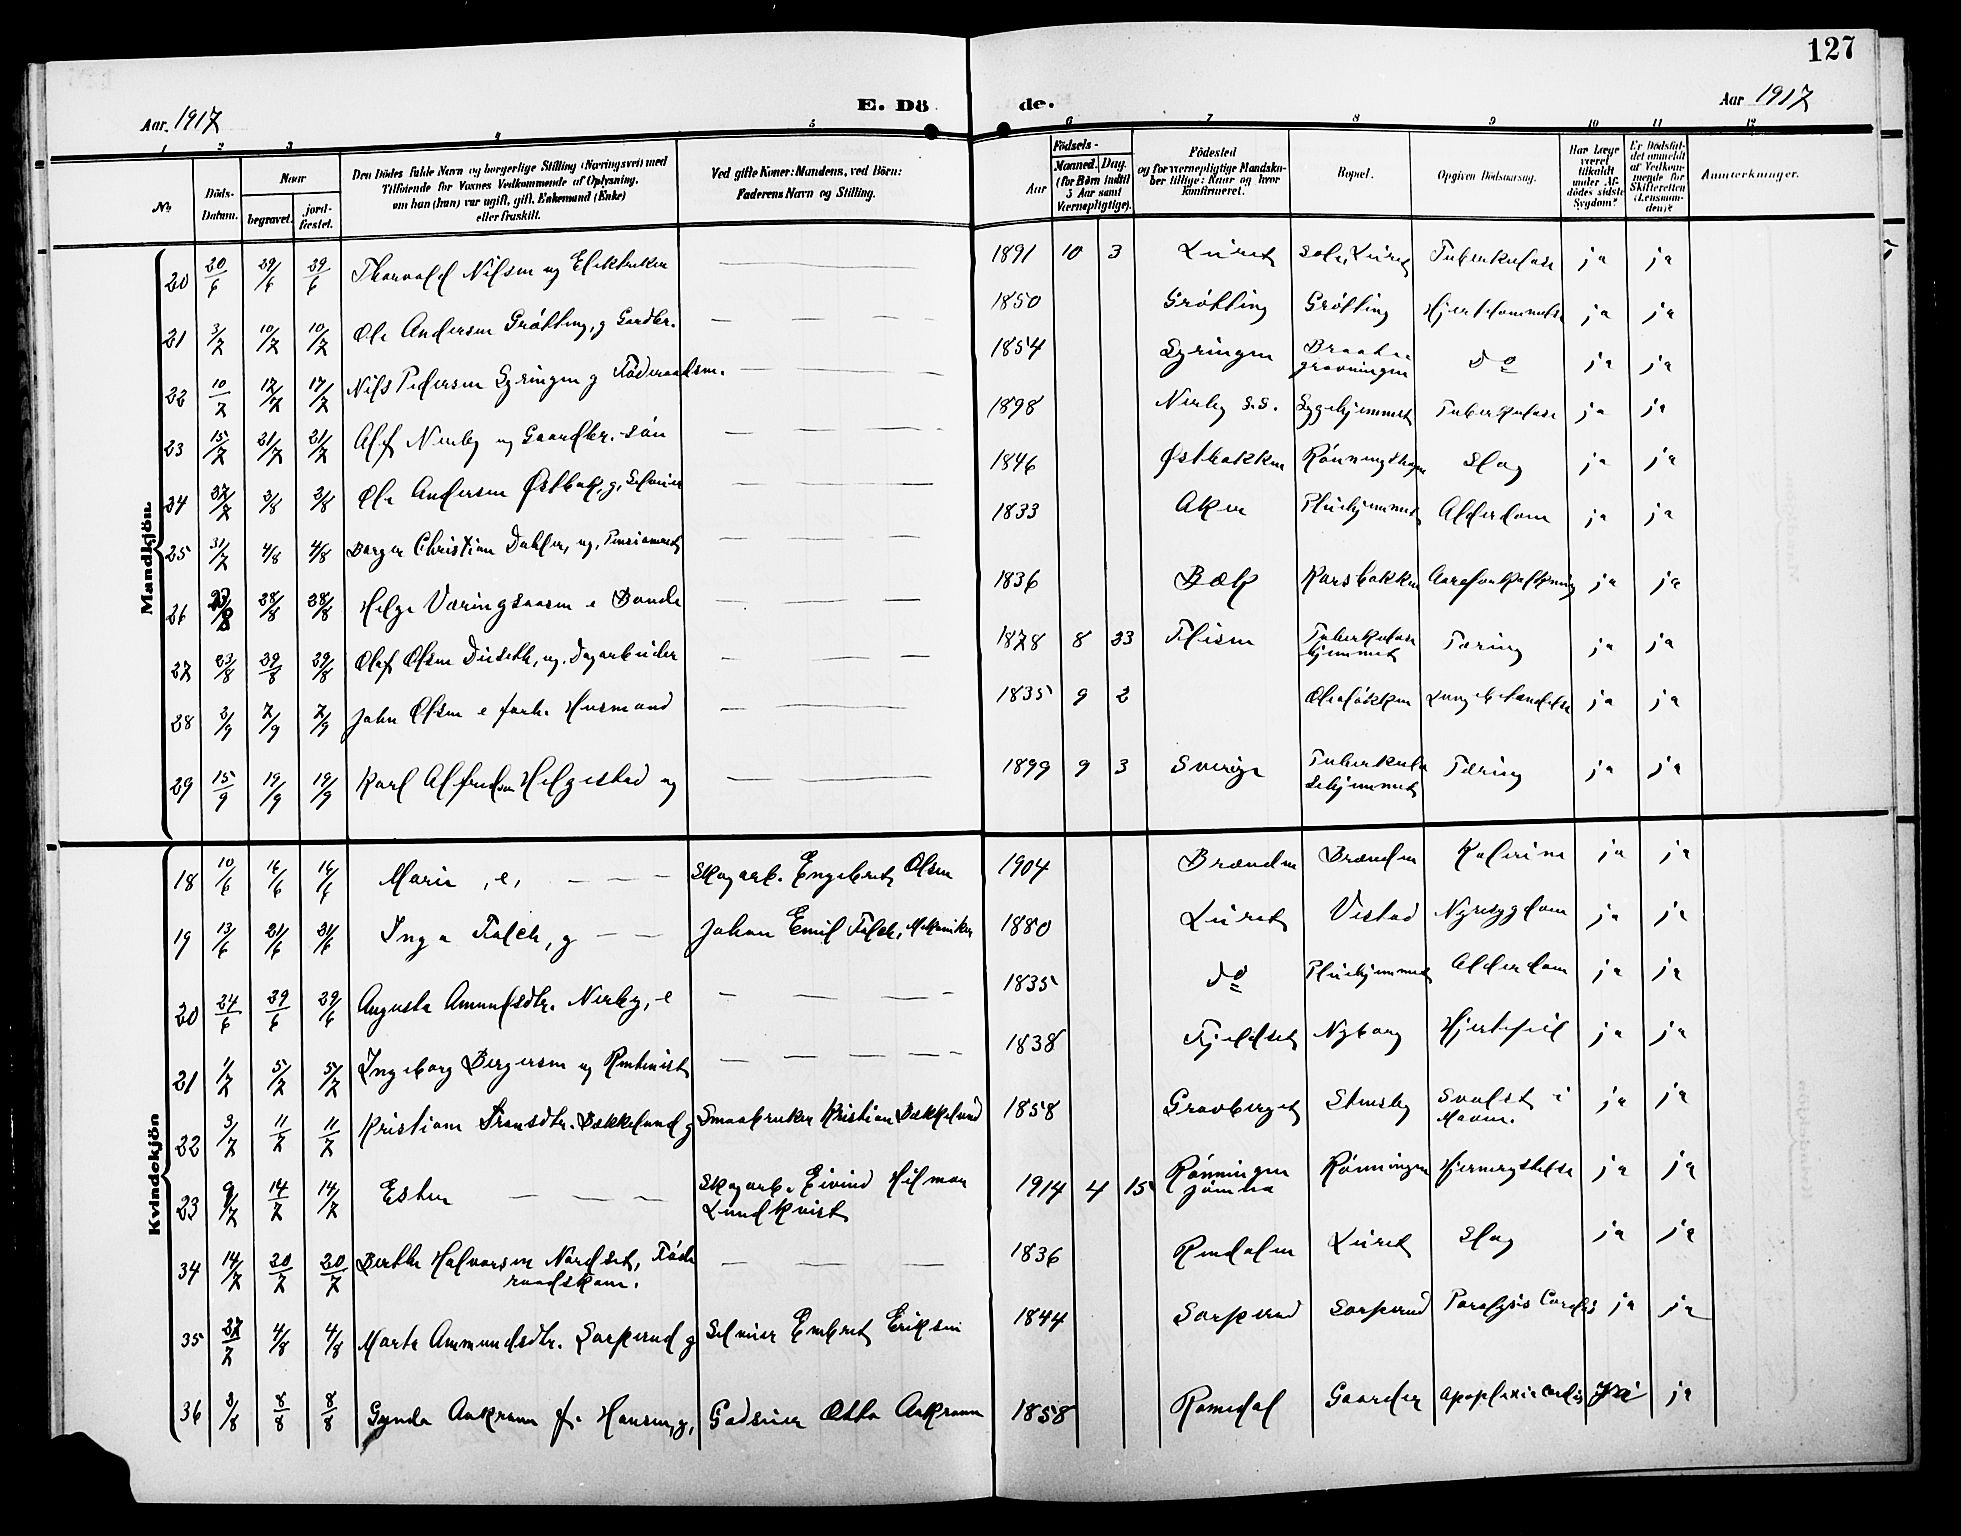 127
Aar. 1917
E. Dö
de.
Aar 1917
1 2 3 4 5 6 7 8 9 10 11 12
No
Döds-Datum.
Naar
begravet.
jord-fæstet.
Den Dödes fulde Navn og borgerlige Stilling (Næringsvei) med
Tilföiende for Voxnes Vedkommende af Oplysning,
om han (hun) var ugift, gift, Enkemand (Enke)
eller fraskilt.
Ved gifte Koner: Mandens, ved Börn:
Faderens Navn og Stilling.
Födsels-
Aar
Maaned.
Dag.
(for Børn indtil
5 Aar samt
Værnepligtige).
Födested
og for værnepligtige Mandska-
ber tillige: Naar og hvor
konfirmeret.
Bopæl.
Opgiven Dödsaarsag.
Har Læge
været
tilkaldt
under Af-
dødes sidste
Sygdom?
Er Dödsfal-
det anmeldt
af Vedkom-
mende for
Skifteretten
(Lensman-
den)?
Anmærkninger.
Mandkjön.
20 20/6 29/6 29/6 Thorvald Nilsen ug Elektriker — — — 1891 10 3 Luret Luret Tuberkulose ja ja
21 3/7 10/7 10/7 Ole Andersen Grøtting, g Gardbr. — — — 1850 Grøtting Grøtting ja ja
22 10/7 17/7 17/7 Nils Pedersen Syringen g Föderaadsm. — — — 1854 Syringen Braaten gravningen do ja ja
23 15/7 21/7 21/7 Alf Nerby ug Gaardbr.-søn — — — 1898 Nerby S.S. Sygehjemmet Tuberkulose ja ja
24 27/7 3/8 3/8 Ole Andersen Østbak, g, Selveier — — — 1846 Østbakken Slag ja ja
25 31/7 4/8 4/8 Borger Christian Dahler, ug, — — — 1833 Aker Pleiehjemmet Alderdom ja ja
26 28/8 28/8 Helge Væringsaasen e Bonde — — — 1836 Bæk Karsbakken Aareforkalkning ja ja
27 23/8 29/8 29/8 Olaf Olsen ug. Dagarbeider — — — 1878 8 23 Flisen Tuberkulose hjemmet Tæring ja ja
28 2/9 7/9 7/9 John Olsen e forh. Husmand — — — 1835 9 2 ja ja
29 15/9 19/9 19/9 Karl Alfredsen Helgestad ug — — — 1899 9 3 Sverige Tuberkulo sehjemmet Tæring ja ja
Kvindekjön
18 10/6 16/6 16/6 Marie, e, — — — Skogarb. Engebret Olsen 1904 Brænden Brænden ja ja
19 13/6 21/6 21/6 Inga Falch, g — — Johan Emil Falch, Mekaniker 1880 Luret Vestad Nyresygdom ja ja
20 24/6 29/6 29/6 Augusta Amundsdtr. Nerby, e — — — 1835 do Pleiehjemmet Alderdom ja ja
21 1/7 5/7 5/7 Ingeborg Bergersen ug Rentenist — — — 1838 Fjeldset Nyborg Hjertefeil ja ja
22 3/7 11/7 11/7 Kristiane Bækkelund g Smaabruker Kristian Bækkelund 1858 Gravberget Stensby Svulst i Maven. ja ja
23 9/7 14/7 14/7 Ester — — — Skogarb. Eivind Hilmar Lundkvist 1914 4 15 Rønningen Jømna Rønningen Hjernerystelse ja ja
34 14/7 20/7 20/7 Berthe Halvorsen Nordset, Føde raadskone. — — — 1836 Rendalen Luret Slag ja ja
35 27/7 4/8 4/8 Marte Ammundsdtr. Sorperud g Selveier Embret Eriksen 1844 Sorperud Sorperud Paralysis Cordis ja ja
36 3/8 8/8 8/8 Gynda Aakrann f. Hansen, g, Godseier Otto Aakrann 1858 Romedal Gaarder Apoplexie ja ja